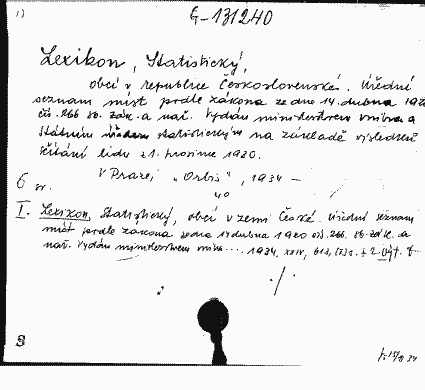 1)
G-131240
Lexikon, Statistický,
obcí v republice Československé. Úřední
seznam míst podle zákona ze dne 14. dubna 1920
čís. 266 sb. zák. a nař. Vydán ministerstvem vnitra a
státním úřadem statistickým na základě výsledků
sčítání lidu z 1. prosince 1930.
V Praze, „Orbis", 1934 –
4°
6 sv.
I. Lexikon, Statistický, obcí v zemi České. Úřední seznam
míst podle zákona ze dne 14. dubna 1920 čís. 266. sb. zák. a
nař. Vydán ministerstvem vnitra ... 1934, XXIV, 613, s. + 2
8